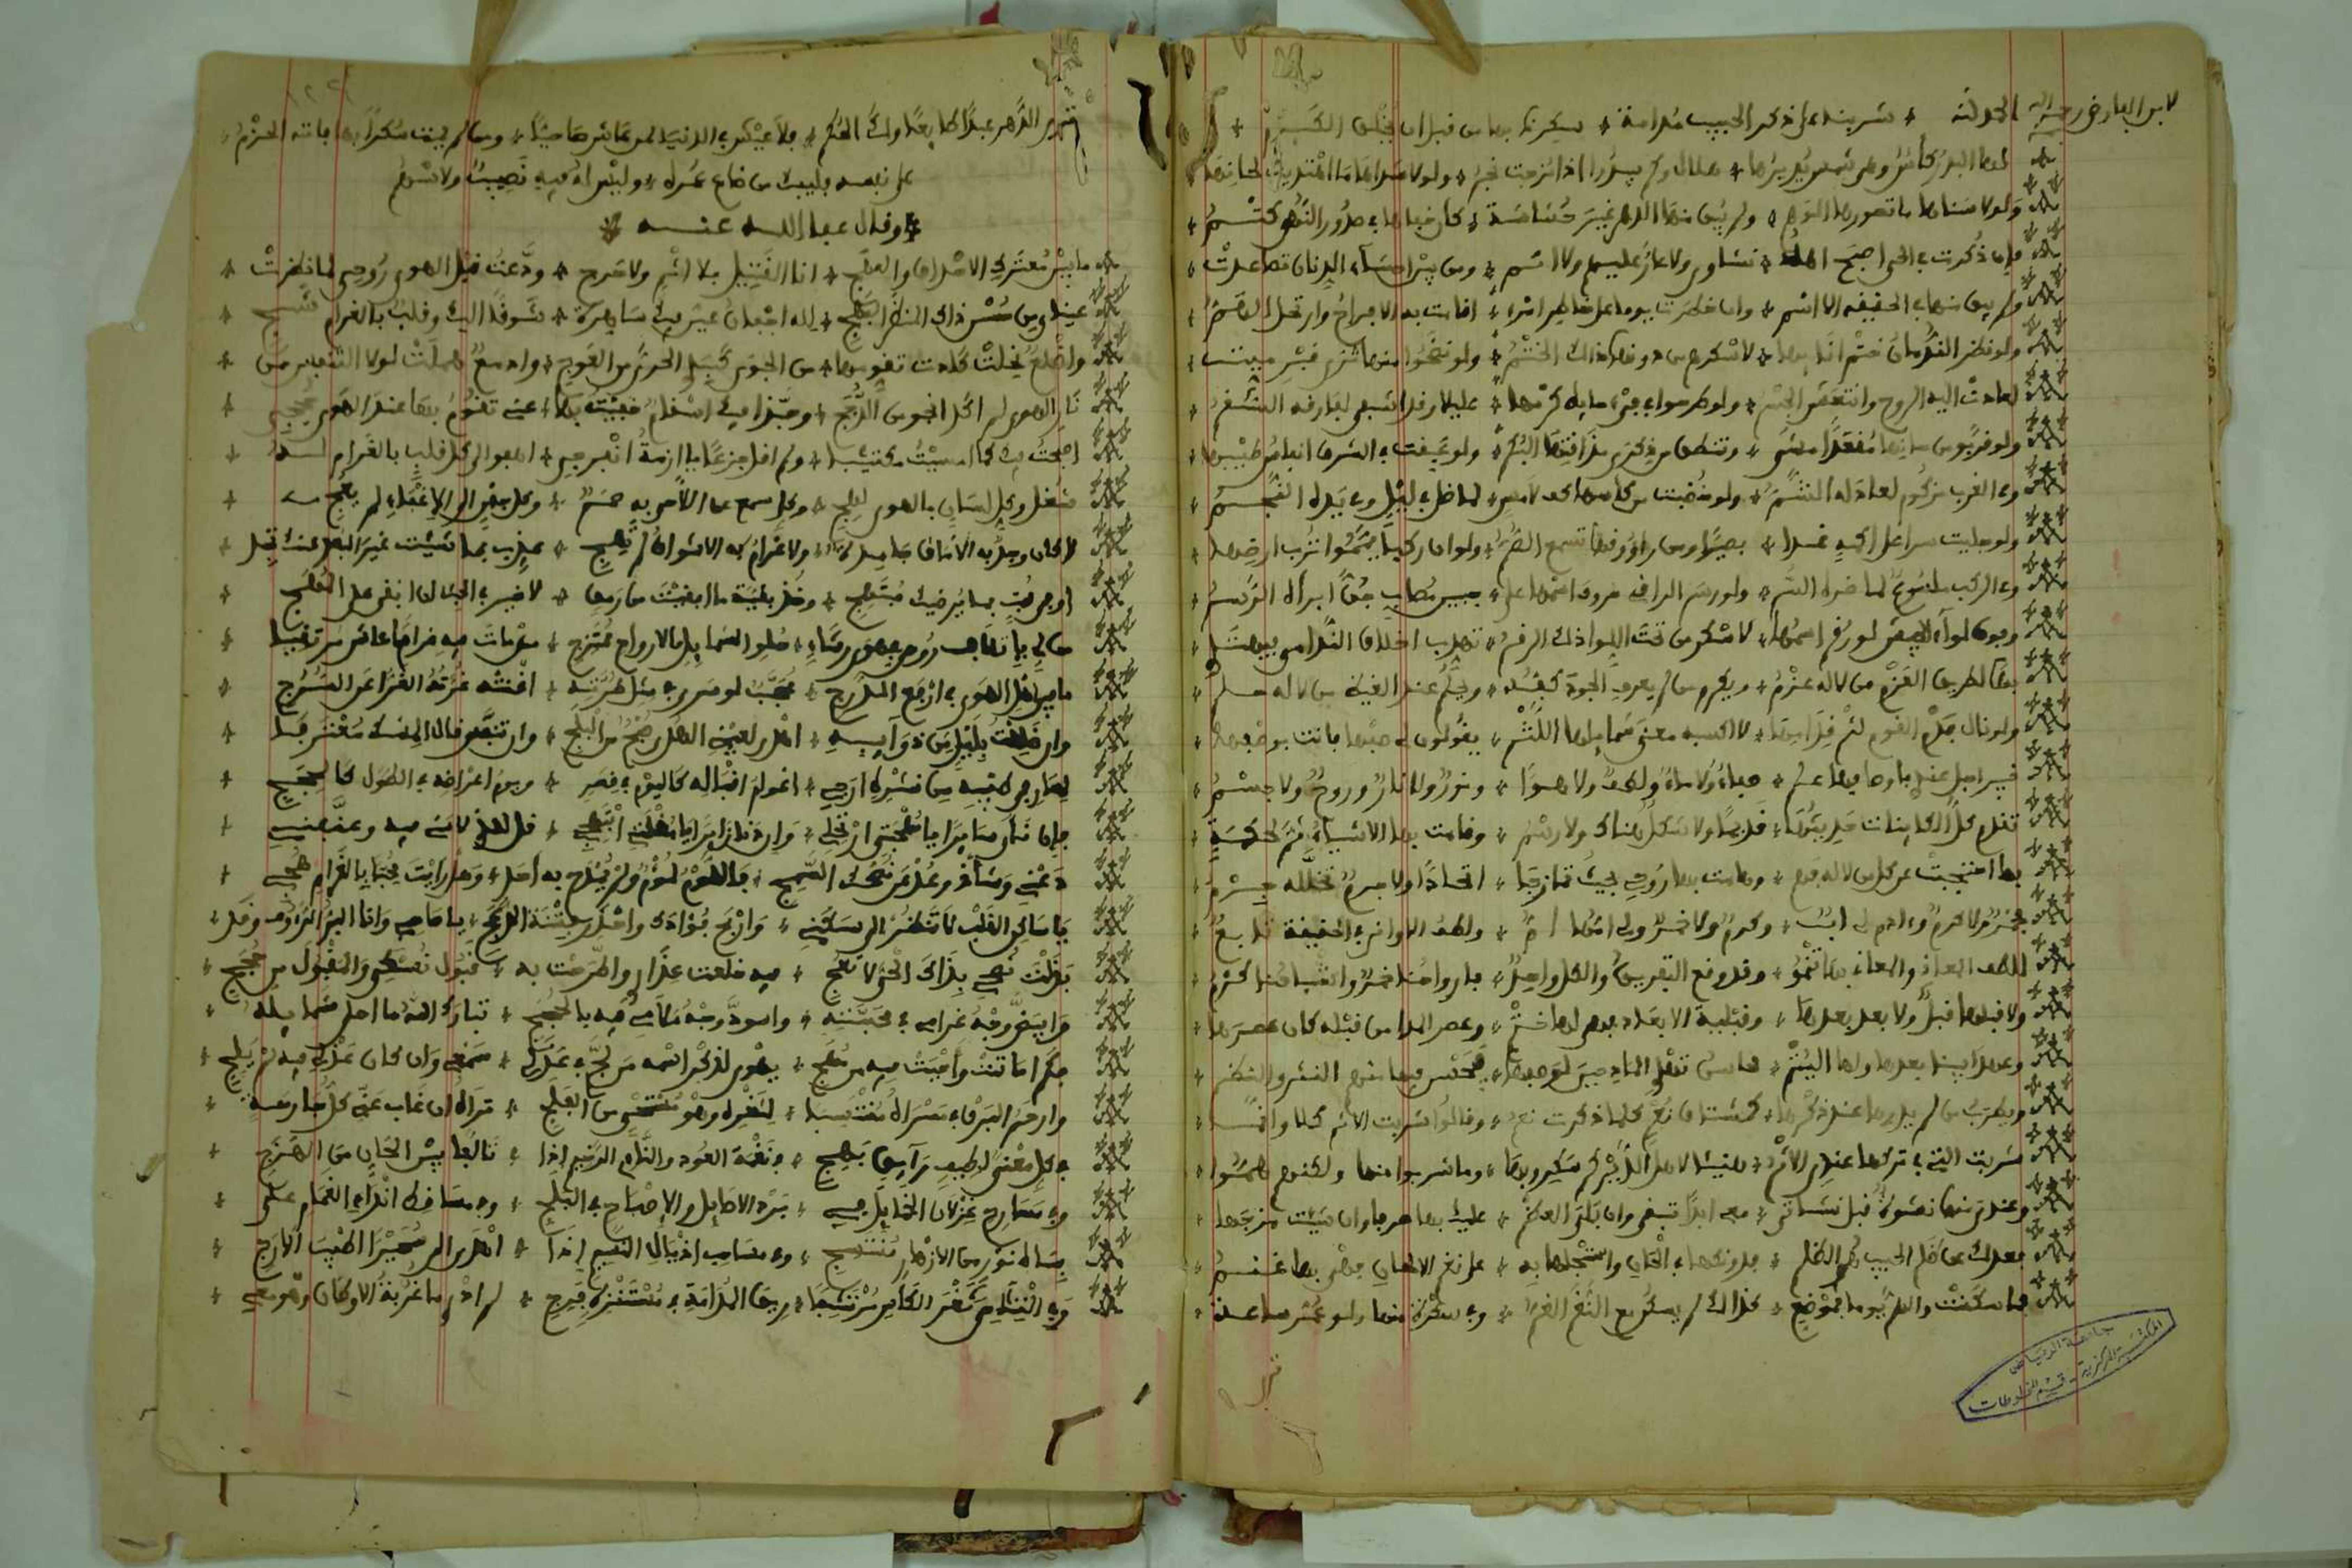 لابن الفارض رحمه الله الحمد لله * شربنا على ذكر الحبيب مدامة * سكرنا بها من قبل ان يخلق الكرم *
لها البدر كأس وهي شمس يديرها * هلال وكم يبدوا اذا مزجت نجم * ولولا شذاها ما اهتديت لحانها
ولولا سناها ما تصورها الوهم * ولم يبق منها الدهر غير حشاشة * كان خفاها في صدور النهى كتم *
فإن ذكرت في الحي اصبح اهله * نشاوى ولا عار عليهم ولا اثم * ومن بين احشاء الدنان تصاعدت *
ولم يبق منها في الحقيقة الا اسم * وان خطرت يوما على خاطر امرء * اقامت به الافراح وارتحل الهم *
ولو نظر الندمان ختم انائها * لاسكرهم من دونها ذاك الختم * ولو نضحوا منها ثرى قبر ميت *
لعادت اليه الروح وانتعش الجسم * ولو طرحوا في فيء حايط كرمها * عليلا وقد اشفى لفارقه السقم *
ولو قربوا من حانها مقعدا مشى * وتنطق من ذكرى مذاقتها البكم * ولو عبقت في الشرق انفاس طيبها
وفي الغرب مزكوم لعاد له الشم * ولو خضبت من كأسها كف لامس * لما ضل في ليل وفي يده النجم *
ولو جليت سرا على اكمه غدا * بصيرا ومن راووقها تسمع الصم * ولو ان ركبا يمموا ترب ارضها
وفي الركب ملسوع لما ضره السم * ولو رسم الراقي حروف اسمها على * جبين مصاب جن ابرأه الرسم *
وفوق لواء الجيش لو رقم اسمها * لاسكر من تحت اللوا ذلك الرقم * تهذب اخلاق الندامى فيهتدي *
بها لطريق العزم من لا له عزم * ويكرم من لم يعرف الجود كفه * ويحلم عند الغيظ من لا له حلم *
ولو نال فدم القوم لثم فدامها * لاكسبه معنى شمايلها اللثم * يقولون لي صفها فانت بوصفها *
خبير اجل عندي باوصافها علم * صفاء ولا ماء ولطف ولا هوا * ونور ولا نار وروح ولا جسم *
تقدم كل الكاينات حديثها * قديما ولا شكل هناك ولا رسم * وقامت بها الاشياء ثم لحكمة
بها احتجبت عن كل من لا له فهم * وهامت بها روحي بحيث تمازجا * اتحادا ولا جرم تخلله جرم *
فخمر ولا كرم وءادم لي اب * وكرم ولا خمر ولي امها ام * ولطف الاواني في الحقيقة تابع *
للطف المعاني والمعاني بها تنمو * وقد وقع التفريق والكل واحد * فارواحنا خمر واشباحنا كرم *
ولا قبلها قبل ولا بعد بعدها * وقبلية الابعاد فهي لها ختم * وعصر المدا من قبله كان عصرها *
وعهد ابينا بعدها ولها اليتم * محاسن تهدي المادحين لوصفها * فيحسن فيها منهم النثر والنظم *
ويطرب من لم يدرها عند ذكرها * كمشتاق نعم كلما ذكرت نعم * وقالوا شربت الاثم كلا وانما
شربت التي في تركها عندي الاثم * هنيئا لاهل الدير كم سكروا بها * وما شربوا منها ولكنهم هموا *
وعندي منها نشوة قبل نشاتي * معي ابدا تبقى وان بلي العظم * عليك بها صرفا وان شئت مزجها
فعدلك عن ظلم الحبيب هو الظلم * فدونكها في الحان واستجلها به * على نغم الالحان فهي بها غنم *
فما سكنت والهم يوما بموضع * كذلك لم يسكن مع النغم الغم * وفي سكرة منها ولو عمر ساعة *
ترى
جامعة الرياض
المكتبة المركزية - قسم المخطوطات
ترى الدهر عبدا طايعا ولك الحكم * فلا عيش في الدنيا لمن عاش صاحيا * ومن لم يمت سكرا بها فاته الحزم *
على نفسه فليبك من ضاع عمره * وليس له فيها نصيب ولا سهم
* وقال عفا الله عنه *
ما بين معترك الاحداق والمهج * انا القتيل بلا اثم ولا حرج * ودعت قبل الهوى روحي لما نظرت *
عيناي من حسن ذاك المنظر البهج * لله اجفان عين فيك ساهرة * شوقا اليك وقلب بالغرام شج *
واضلع نحلت كادت تقومها * من الجوى كبدي الحرى من العوج * وادمع هملت لولا التنفس من *
نار الهوى لم اكد انجو من اللجج * وحبذا فيك اسقام خفيت بها * عني تقوم بها عند الهوى حججي *
اصبحت فيك كما امسيت مكتئبا * ولم اقل جزعا يا ازمة انفرجي * اهفو الى كل قلب بالغرام له *
شغل وكل لسان بالهوى لهج * وكل سمع عن اللاحي به صمم * وكل جفن الى الاغفاء لم يعج *
لا كان وجد به الآماق جامدة * ولا غرام به الاشواق لم تهج * عذب بما شئت غير البعد عنك تجد *
اوفى محب بما يرضيك مبتهج * وخذ بقية ما ابقيت من رمق * لا خير في الحب ان ابقى على المهج *
من لي باتلاف روحي في هوى رشاء * حلو الشمايل بالارواح ممتزج * من مات فيه غراما عاش مرتقيا *
ما بين اهل الهوى في ارفع الدرج * محجب لو سرى في مثل طرته * اغنته غرته الغرا عن السرج *
وان ضللت بليل من ذوايبه * اهدى لعيني الهدى صبح من البلج * وان تنفس قال المسك معترفا *
لعارفي طيبه من نشره ارجي * اعوام اقباله كاليوم في قصر * ويوم اعراضه في الطول كالحجج *
فإن نأى سايرا يا مهجتي ارتحلي * وان دنا زايرا يا مقلتي ابتهجي * قل للذي لامني فيه وعنفني *
دعني وشأني وعد عن نصحك السمج * فاللوم لؤم ولم يمدح به احد * وهل رايت محبا بالغرام هجي *
يا ساكن القلب لا تنظر الى سكني * واربح فؤادك واحذر فتنة الدعج * يا صاحبي وانا البر الرؤوف وقد *
بذلت نصحي بذاك الحي لا تعج * فيه خلعت عذاري واطرحت به * قبول نسكي والمقبول من حججي *
وابيض وجه غرامي في محبته * واسود وجه ملامي فيه بالحجج * تبارك الله ما احلى شمايله *
فكم اماتت واحيت فيه من مهج * يهوى لذكر اسمه من لج في عذلي * سمعي وان كان عذلي فيه لم يلج *
وارحم البرق في مسراه منتسبا * لثغره وهو مستحيي من الفلج * تراه ان غاب عني كل جارحة *
في كل معنى لطيف رايق بهج * في نغمة العود والناي الرخيم اذا * تالفا بين الحان من الهزج *
وفي مسارح غزلان الخمايل في * برد الاصايل والاصباح في البلج * وفي مساقط انداء الغمام على *
بساط نور من الازهار منتسج * وفي مساحب اذيال النسيم اذا * اهدى الي سحيرا اطيب الارج *
وفي التثامي ثغر الكاس مرتشفا * ريق المدامة في مستنزه فرج * لم ادر ما غربة الاوطان وهو معي *